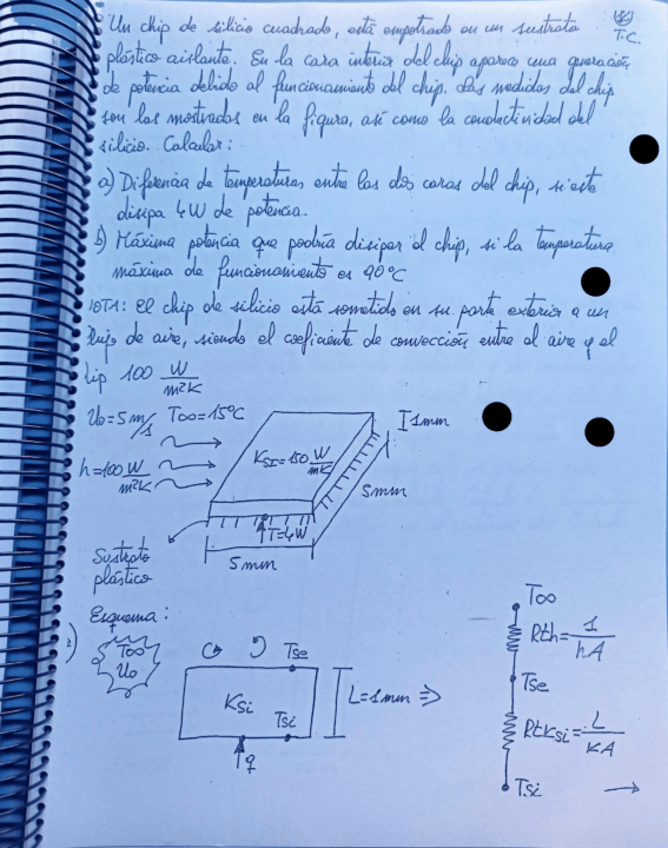 Un chip de silicio cuadrado, está empotrado en un sustrato
T.C.
plástico aislante. En la cara interior del chip aparece una generación
de potencia debido al funcionamiento del chip. Las medidas del chip
son las mostradas en la figura, así como la conductividad del
silicio. Calcular:
a) Diferencia de temperaturas entre las dos caras del chip, si este
disipa 4W de potencia.
b) Máxima potencia que podría disipar el chip, si la temperatura
máxima de funcionamiento es 90°C
NOTA: El chip de silicio está sometido en su parte exterior a un
flujo de aire, siendo el coeficiente de convección entre el aire y el
chip 100 W/m²K
U0=5m/s T∞=15°C
I 1mm
KSI=150 W/mK
h=100 W/m²K
5mm
T=4W
Sustrato
plástico
5mm
Esquema:
T∞
U0
Tse
KSi
Tsi
L=1mm ⇒
q
T∞
Rth=1/hA
Tse
RtKSi=L/KA
Tsi →